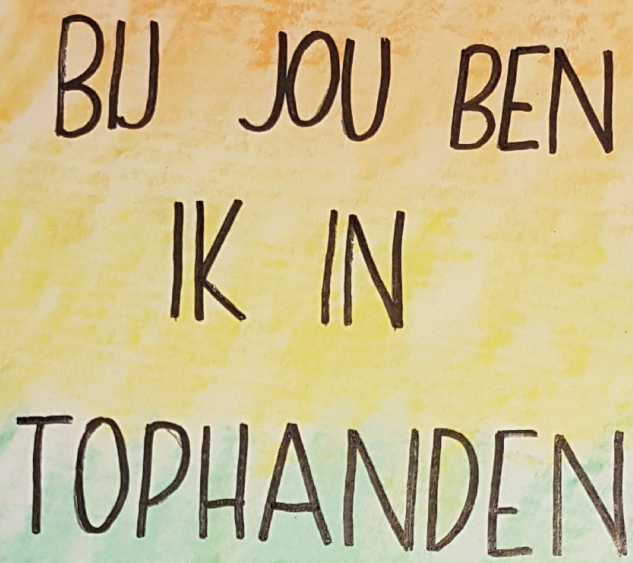 BIJ JOU BEN
IK IN
TOPHANDEN